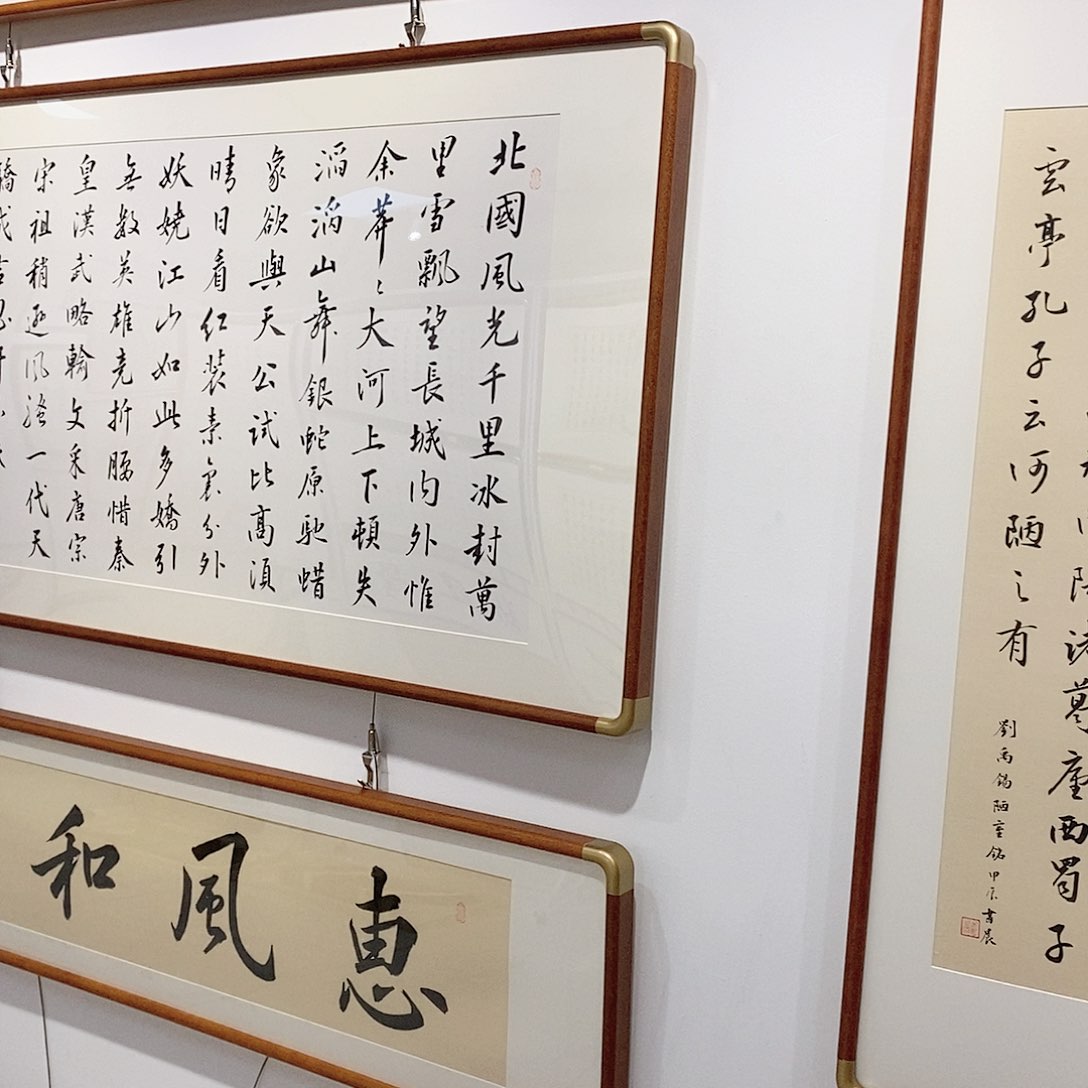 北國風光千里冰封萬
里雪飄望長城内外惟
余莽〻大河上下頓失
滔滔山舞銀蛇原馳蜡
象欲與天公試比高須
晴日看红装素裹分外
妖娆江山如此多嬌引
無数英雄竞折腰惜秦
皇漢武略輸文采唐宗
宋祖稍逊風骚一代天
惠風和
诸葛廬西蜀子
雲亭孔子云何陋之有
劉禹锡陋室铭甲辰書